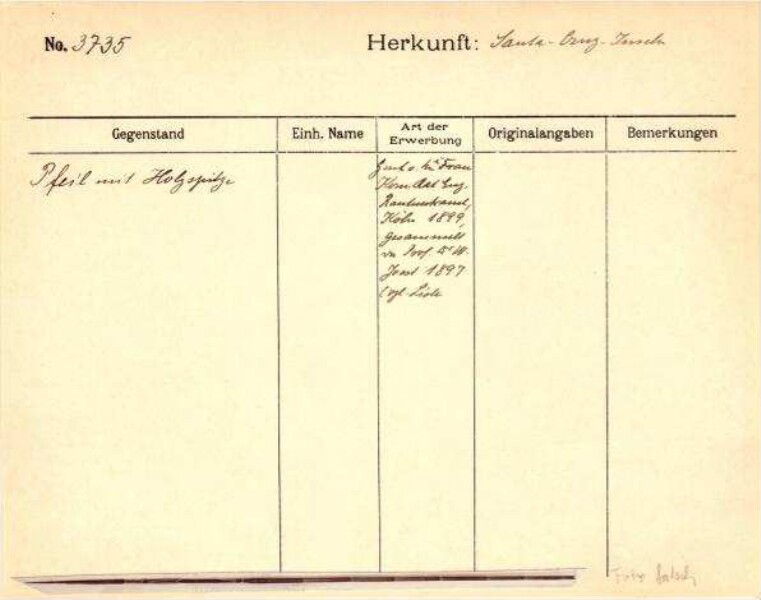 No. 3735
Herkunft: Santa-Cruz-Inseln
Gegenstand
Einh. Name
Art der Erwerbung
Originalangaben
Bemerkungen
Pfeil mit Holzspitze
Frau
Rautenstrauch,
Köln 1899,
gesammelt
Prof. Dr W.
Joest 1897
(vgl. Liste
Foto